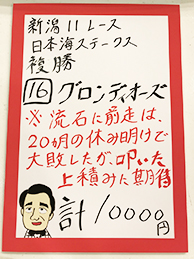 新潟11レース
日本海ステークス
複勝
⑯グロンディオーズ
※流石に前走は、
20ヵ月の休み明けで
大敗したが、叩いた
上積みに期待
計10000円